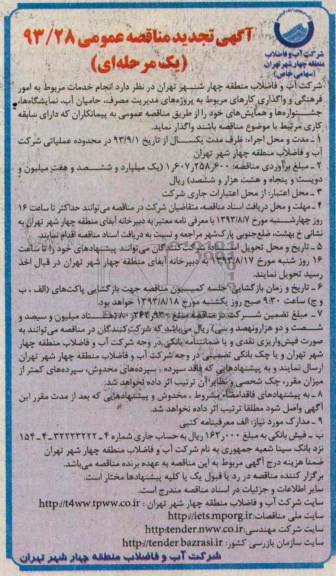 شرکت آب و فاضلاب
منطقه چهار شهر تهران
(سهامی خاص)
آگهی تجدید مناقصه عمومی ۹۳/۲۸
(یک مرحله‌ای)
شرکت آب و فاضلاب منطقه چهار شهر تهران در نظر دارد انجام خدمات مربوط به امور
فرهنگی و واگذاری کارهای مربوط به پروژه‌های مدیریت مصرف، حامیان آب، نمایشگاه‌ها،
جشنواره‌ها و همایش‌های خود را از طریق مناقصه عمومی به پیمانکاران که دارای سابقه
کاری مرتبط با موضوع مناقصه باشند واگذار نماید.
۱ ـ مدت و محل اجراء: ظرف مدت یکسال از تاریخ ۹۳/۹/۱ در محدوده عملیاتی شرکت
آب و فاضلاب منطقه چهار شهر تهران
۲ ـ مبلغ برآوردی مناقصه: ۱,۶۰۷,۲۵۸,۶۰۰ (یک میلیارد و ششصد و هفت میلیون و
دویست و پنجاه و هشت هزار و ششصد) ریال
۳ ـ محل اعتبار: از محل اعتبارات جاری شرکت
۴ ـ مهلت و محل دریافت اسناد مناقصه: متقاضیان شرکت در مناقصه می‌توانند حداکثر تا ساعت ۱۶
روز چهارشنبه مورخ ۱۳۹۳/۸/۷ با معرفی نامه معتبر به دبیرخانه آبفای منطقه چهار شهر تهران به
نشانی خ بهشت، ضلع جنوبی پارک‌شهر مراجعه و نسبت به دریافت اسناد مناقصه اقدام نمایند.
۵ ـ تاریخ و محل تحویل اسناد: شرکت کنندگان می‌توانند پیشنهادهای خود را تا ساعت
۱۶ روز شنبه مورخ ۱۳۹۳/۸/۱۷ به دبیرخانه آبفای منطقه چهار شهر تهران در قبال اخذ
رسید تحویل نمایند.
۶ ـ تاریخ و زمان بازگشایی: جلسه کمیسیون مناقصه جهت بازگشایی پاکت‌های (الف ، ب ،
ج) ساعت ۹:۳۰ صبح روز یکشنبه مورخ ۱۳۹۳/۸/۱۸ خواهد بود.
۷ ـ مبلغ تضمین شرکت در مناقصه مبلغ میلیون و سیصد و
شصت و دو هزار و نهصد و سی) ریال می‌باشد که شرکت‌کنندگان در مناقصه می‌توانند به
صورت فیش‌واریزی نقدی و یا ضمانتنامه بانکی در وجه شرکت آب و فاضلاب منطقه چهار
شهر تهران و یا چک بانکی تضمینی در وجه شرکت آب و فاضلاب منطقه چهار شهر تهران
ارسال نمایند و به پیشنهادهایی که فاقد سپرده ، سپرده‌های مخدوش، سپرده‌های کمتر از
میزان مقرر، چک شخصی و نظایر آن ترتیب اثر داده نخواهد شد.
۸ ـ به پیشنهادهای فاقد امضاء، مشروط ، مخدوش و پیشنهادهایی که بعد از مدت مقرر این
آگهی واصل شود مطلقا ترتیب اثر داده نخواهد شد.
۹ ـ مدارک مورد نیاز: الف معرفینامه کتبی
ب ـ فیش بانکی به مبلغ ۱۶۲,۰۰۰ ریال به حساب جاری شماره ۴ ـ ۳۲۲۲۳۲۲۲ ـ ۴ ـ ۱۵۴
نزد بانک سینا شعبه جمهوری به نام شرکت آب و فاضلاب منطقه چهار شهر تهران
ضمنا هزینه درج آگهی مربوط به این مناقصه به عهده برنده مناقصه می‌باشد.
برگزار کننده مناقصه در رد یا قبول یک یا کلیه پیشنهادها مختار است.
سایر اطلاعات و جزئیات در اسناد مناقصه مندرج است.
سایت شرکت آب و فاضلاب منطقه چهار شهر تهران : http://t4ww.tpww.co.ir
سایت ملی مناقصات http://iets.mporg.ir
سایت شرکت مهندسی http:tender.nww.co.ir
سایت سازمان بازرسی کشور: http://tender.bazrasi.ir
شرکت آب و فاضلاب منطقه چهار شهر تهران